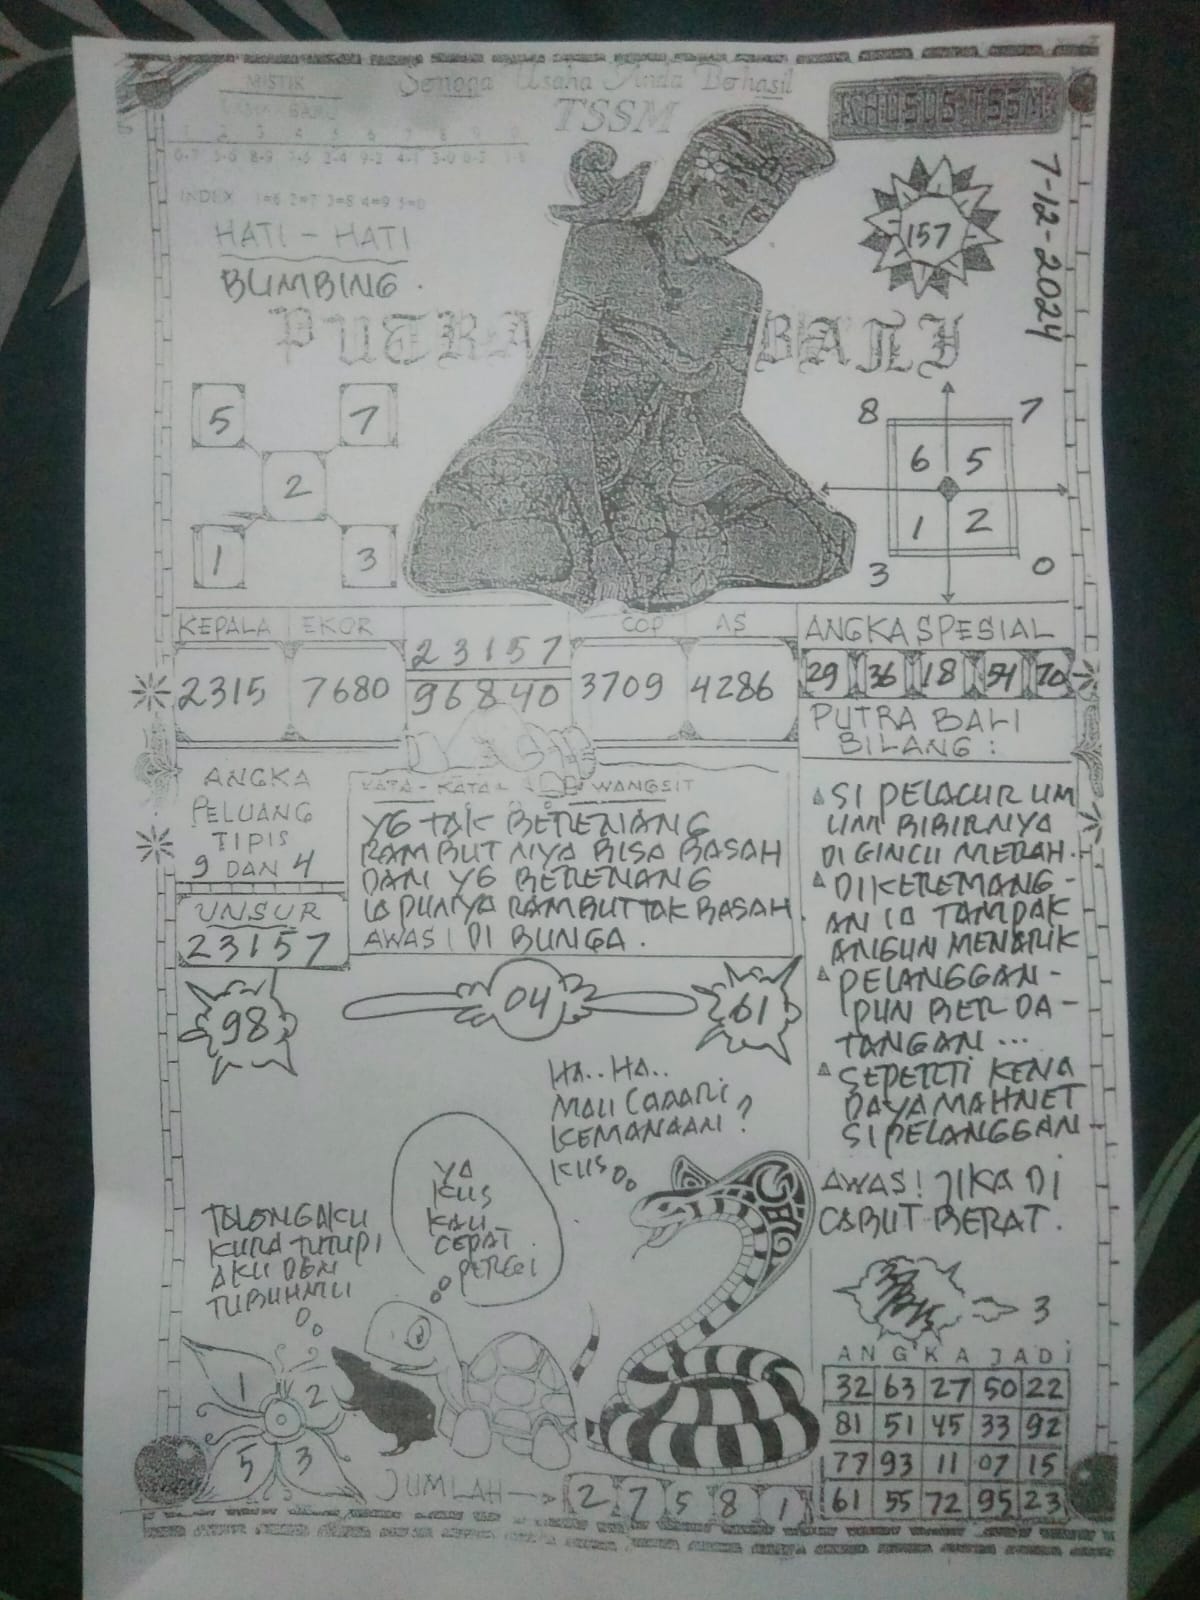 MISTIK
Semoga Usaha Anda Berhasil
TSSM
KHUSUS TSSM
LAMA - BARU
1 2 3 4 5 6 7 8 9 0
INDEX 1=6 2=7 3=8 4=9 5=0
7-12-2024
157
HATI - HATI
BUMBING.
PUTRA BALI
5 7
2
1 3
8 7
6 5
1 2
3 0
KEPALA EKOR
2315 7680
23157
96840
COP AS
3709 4286
ANGKA SPESIAL
29 36 18 54 70
PUTRA BALI
BILANG :
ANGKA
PELUANG
TIPIS
9 DAN 4
UNSUR
23157
KATA - KATA WANGSIT
YG TAK BERENANG
RAMBUT NYA BISA BASAH
DAN YG BERENANG
IA PUNYA RAMBUT TAK BASAH.
AWAS! DI BUNGA.
SI PELACUR UM
UM BIBIRNYA
DI GINCU MERAH.
DIKEREMANG-
AN IA TAMPAK
ANGUN MENARIK
PELANGGAN-
PUN BER DA-
TANGAN ...
SEPERTI KENA
DAYA MAHNET
SI PELANGGAN
AWAS! JIKA DI
CABUT BERAT.
3
98
04
61
HA.. HA..
MAU CAAARI
KEMANAAN ?
KUS
YA
KUS
KAU
CEPAT
PERGI
TOLONG AKU
KURA TUTUPI
AKU DGN
TUBUHMU
1 2
5 3
JUMLAH
2 7 5 8 1
ANGKA JADI
32 63 27 50 22
81 51 45 33 92
77 93 11 07 15
61 55 72 95 23